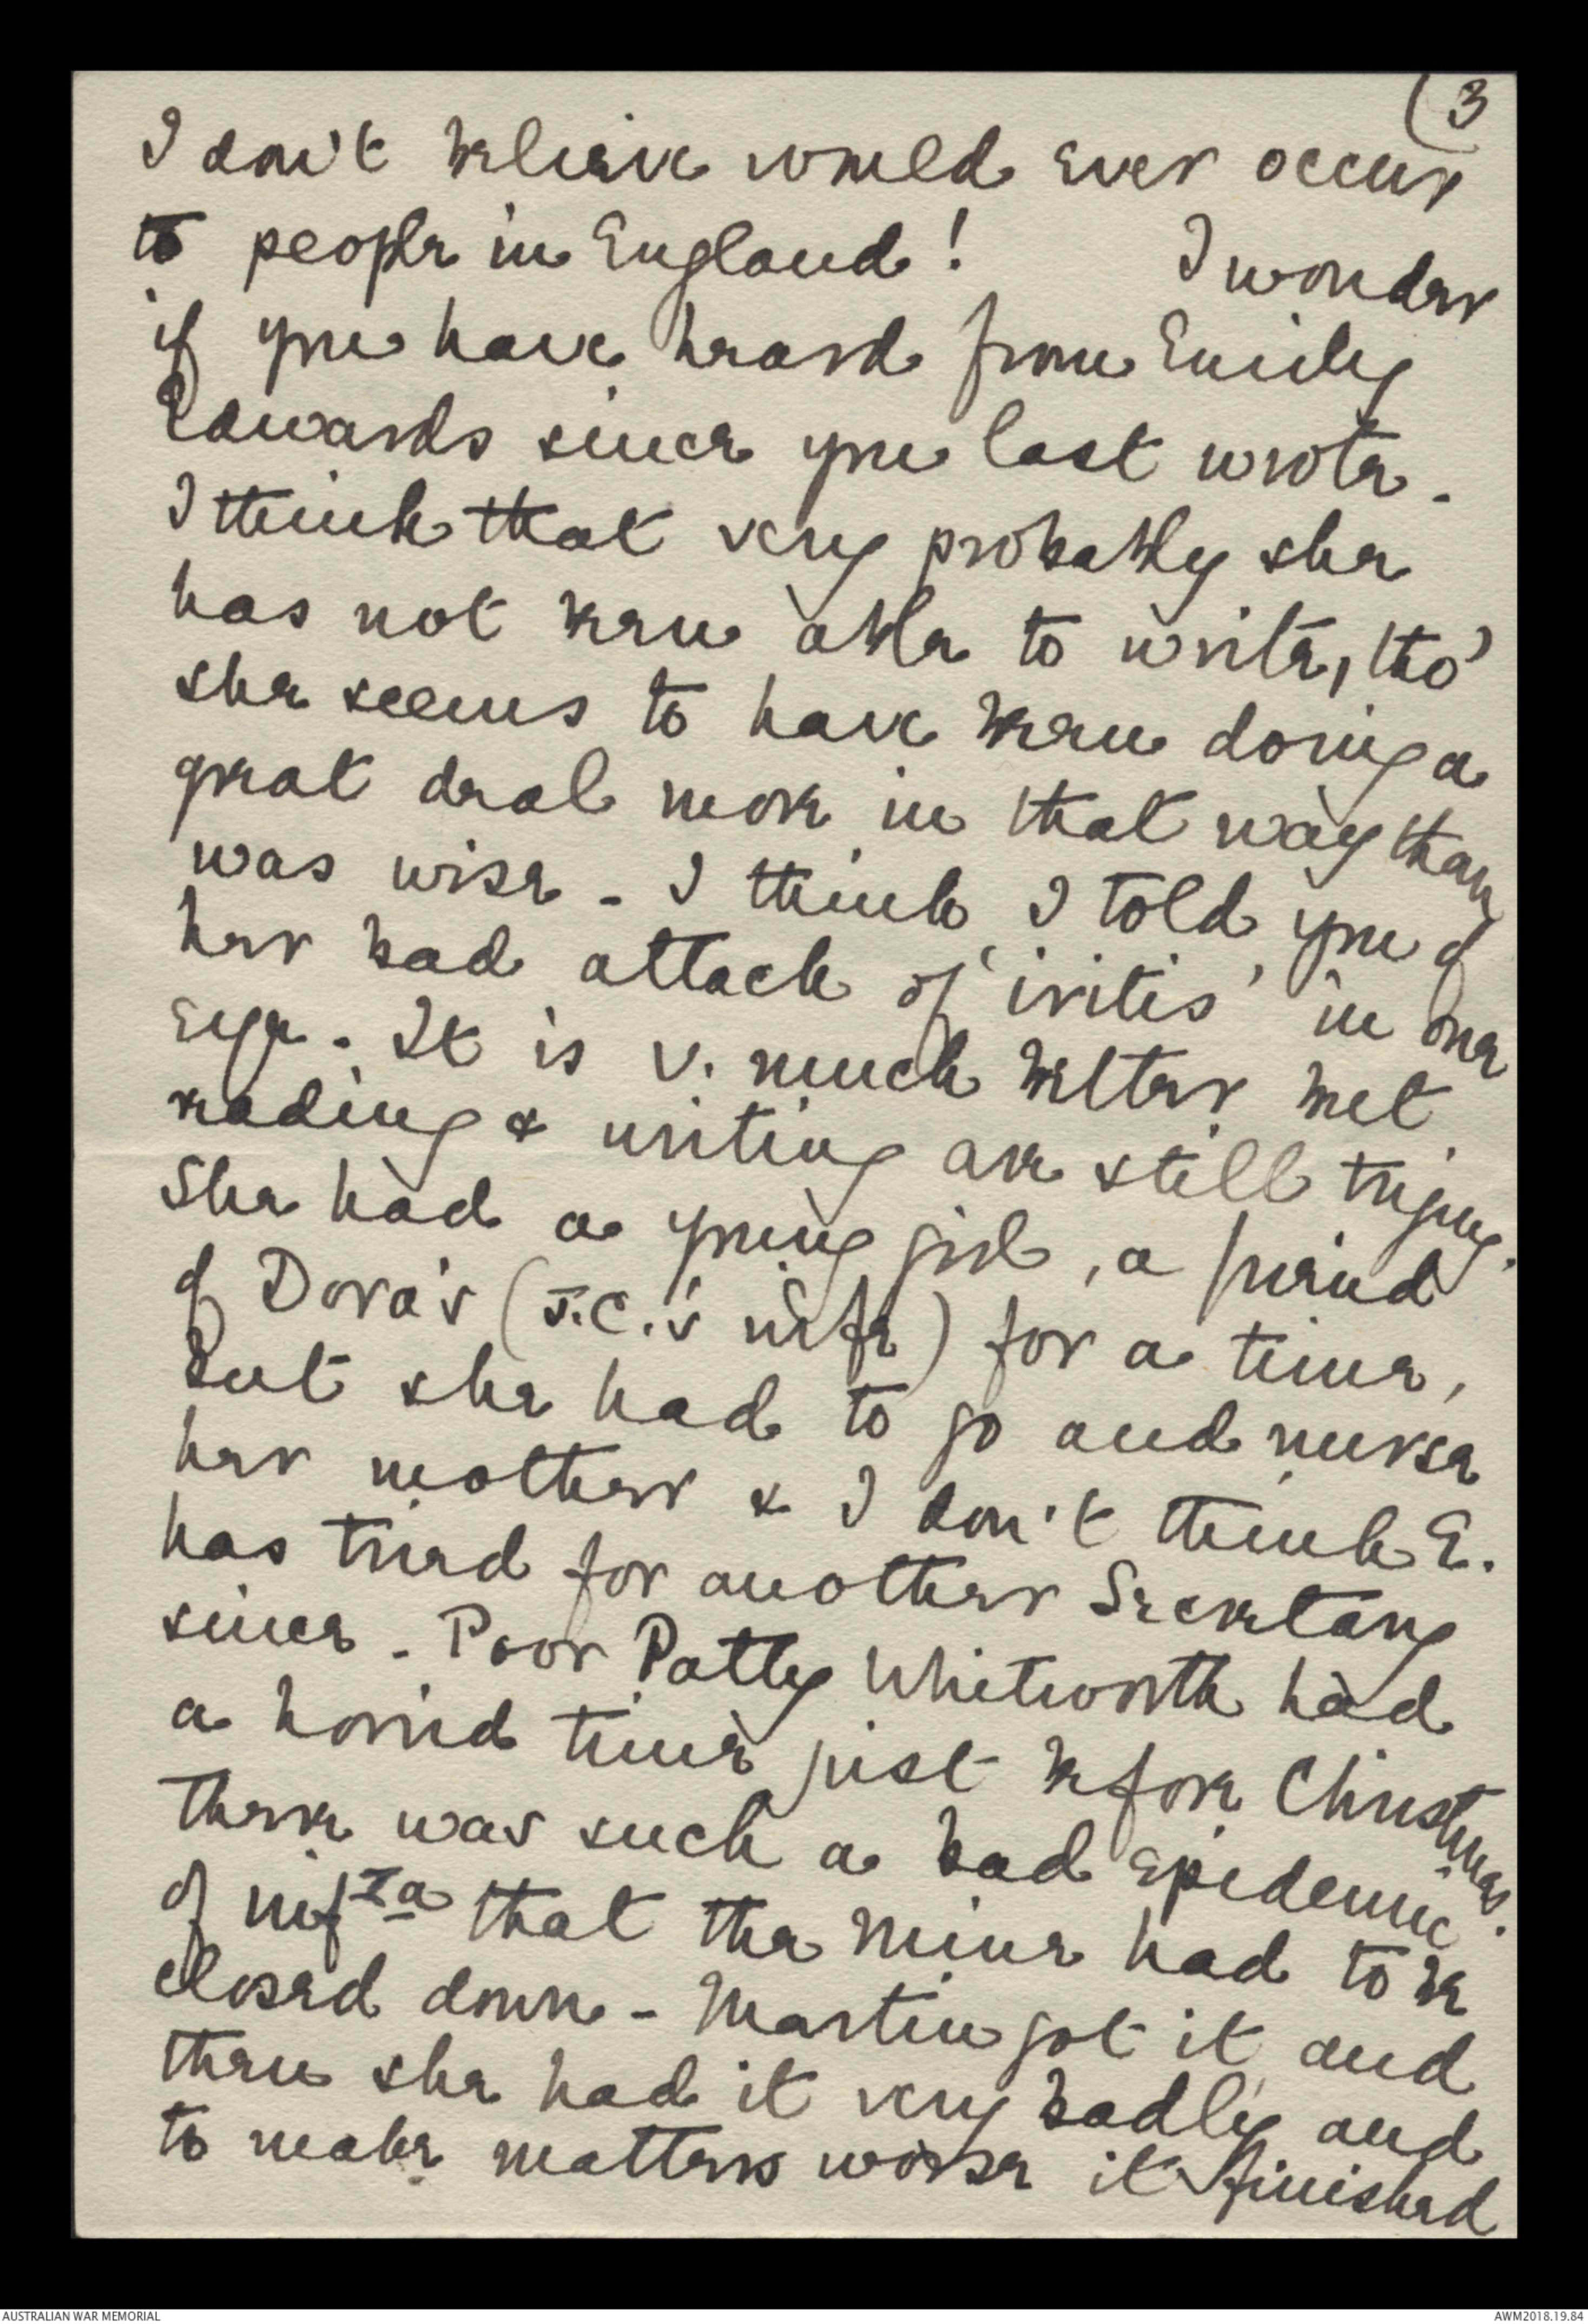 (3
I don't believe would ever occur
to people in England! I wonder
if you have heard from Emily
Edwards since you last wrote.
I think that very probably she
has not been able to write, tho'
she seems to have been doing a
great deal more in that way than
was wise - I think I told you of
her bad attack of 'iritis' in one
eye. It is v. much better but
reading & writing are still trying.
She had a young girl, a friend
of Dora's (J.C.'s wife) for a time,
but she had to go and nurse
her mother & I don't think E.
has tried for another Secretary
since. Poor Patty Whitworth had
a horrid time just before Christmas.
There was such a bad epidemic
of inf.za that the Mine had to be
closed down - Martin got it and
then she had it very badly and
to make matters worse it finished
AUSTRALIAN WAR MEMORIAL
AWM2018.19.84